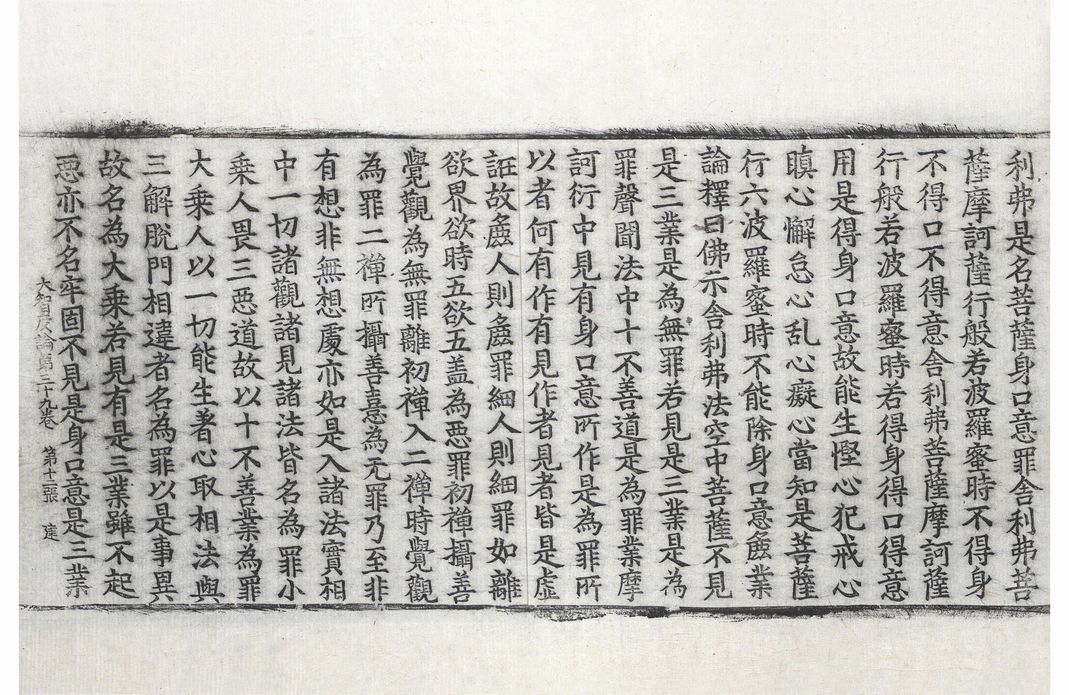 利弗是名菩薩身口意罪舍利弗菩
薩摩訶薩行般若波羅蜜時不得身
不得口不得意舍利弗菩薩摩訶薩
行般若波羅蜜時若得身得口得意
用是得身口意故能生慳心犯戒心
瞋心懈怠心乱心癡心當知是菩薩
行六波羅蜜時不能除身口意麁業
論釋曰佛示舍利弗法空中菩薩不見
是三業是為無罪若見是三業是為
罪聲聞法中十不善道是為罪業摩
訶衍中見有身口意所作是為罪所
以者何有作有見作者見者皆是虛
誑故麁人則麁罪細人則細罪如離
欲界欲時五欲五盖為惡罪初禪攝善
覺觀為無罪離初禪入二禪時覺觀
為罪二禪所攝善憙為无罪乃至非
有想非無想處亦如是入諸法實相
中一切諸觀諸見諸法皆名為罪小
乗人畏三惡道故以十不善業為罪
大乗人以一切能生著心取相法與
三解脫門相違者名為罪以是事異
故名為大乗若見有是三業雖不起
惡亦不名牢固不見是身口意是三業
大智度論第三十九卷 第十二張 建